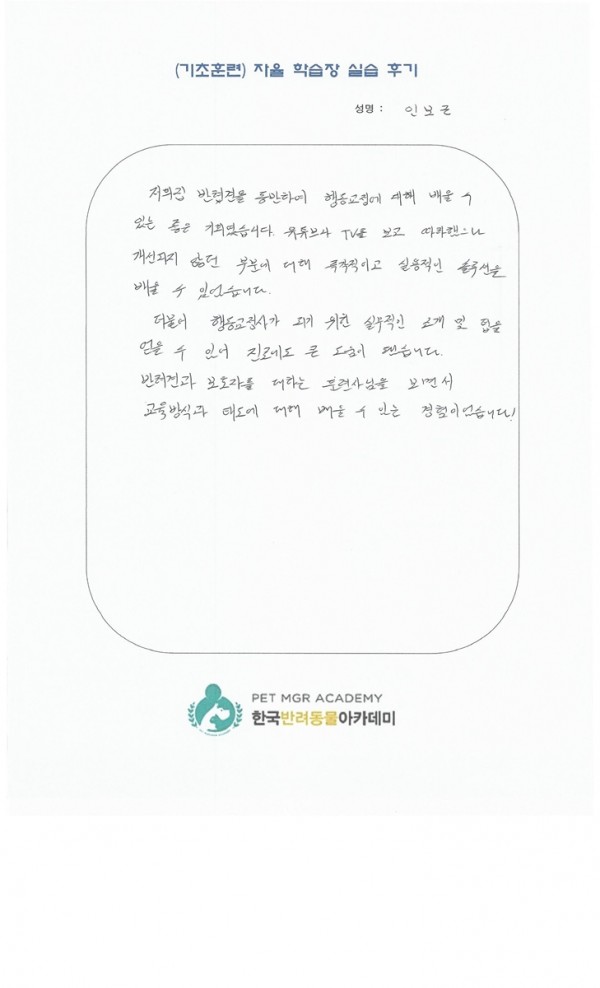 (기초훈련) 자율 학습장 실습 후기
성명 : 인보근
저희집 반려견을 동반하여 행동교정에 대해 배울 수
있는 좋은 기회였습니다. 유튜브나 TV를 보고 따라했으나
개선되지 않던 부분에 대해 즉각적이고 실용적인 솔루션을
배울 수 있었습니다.
더불어 행동교정사가 되기 위한 실무적인 소개 및 팁을
얻을 수 있어 진로에도 큰 도움이 됐습니다.
반려견과 보호자를 대하는 훈련사님을 보면서
교육방식과 태도에 대해 배울 수 있는 경험이었습니다!
PET MGR ACADEMY
한국반려동물아카데미